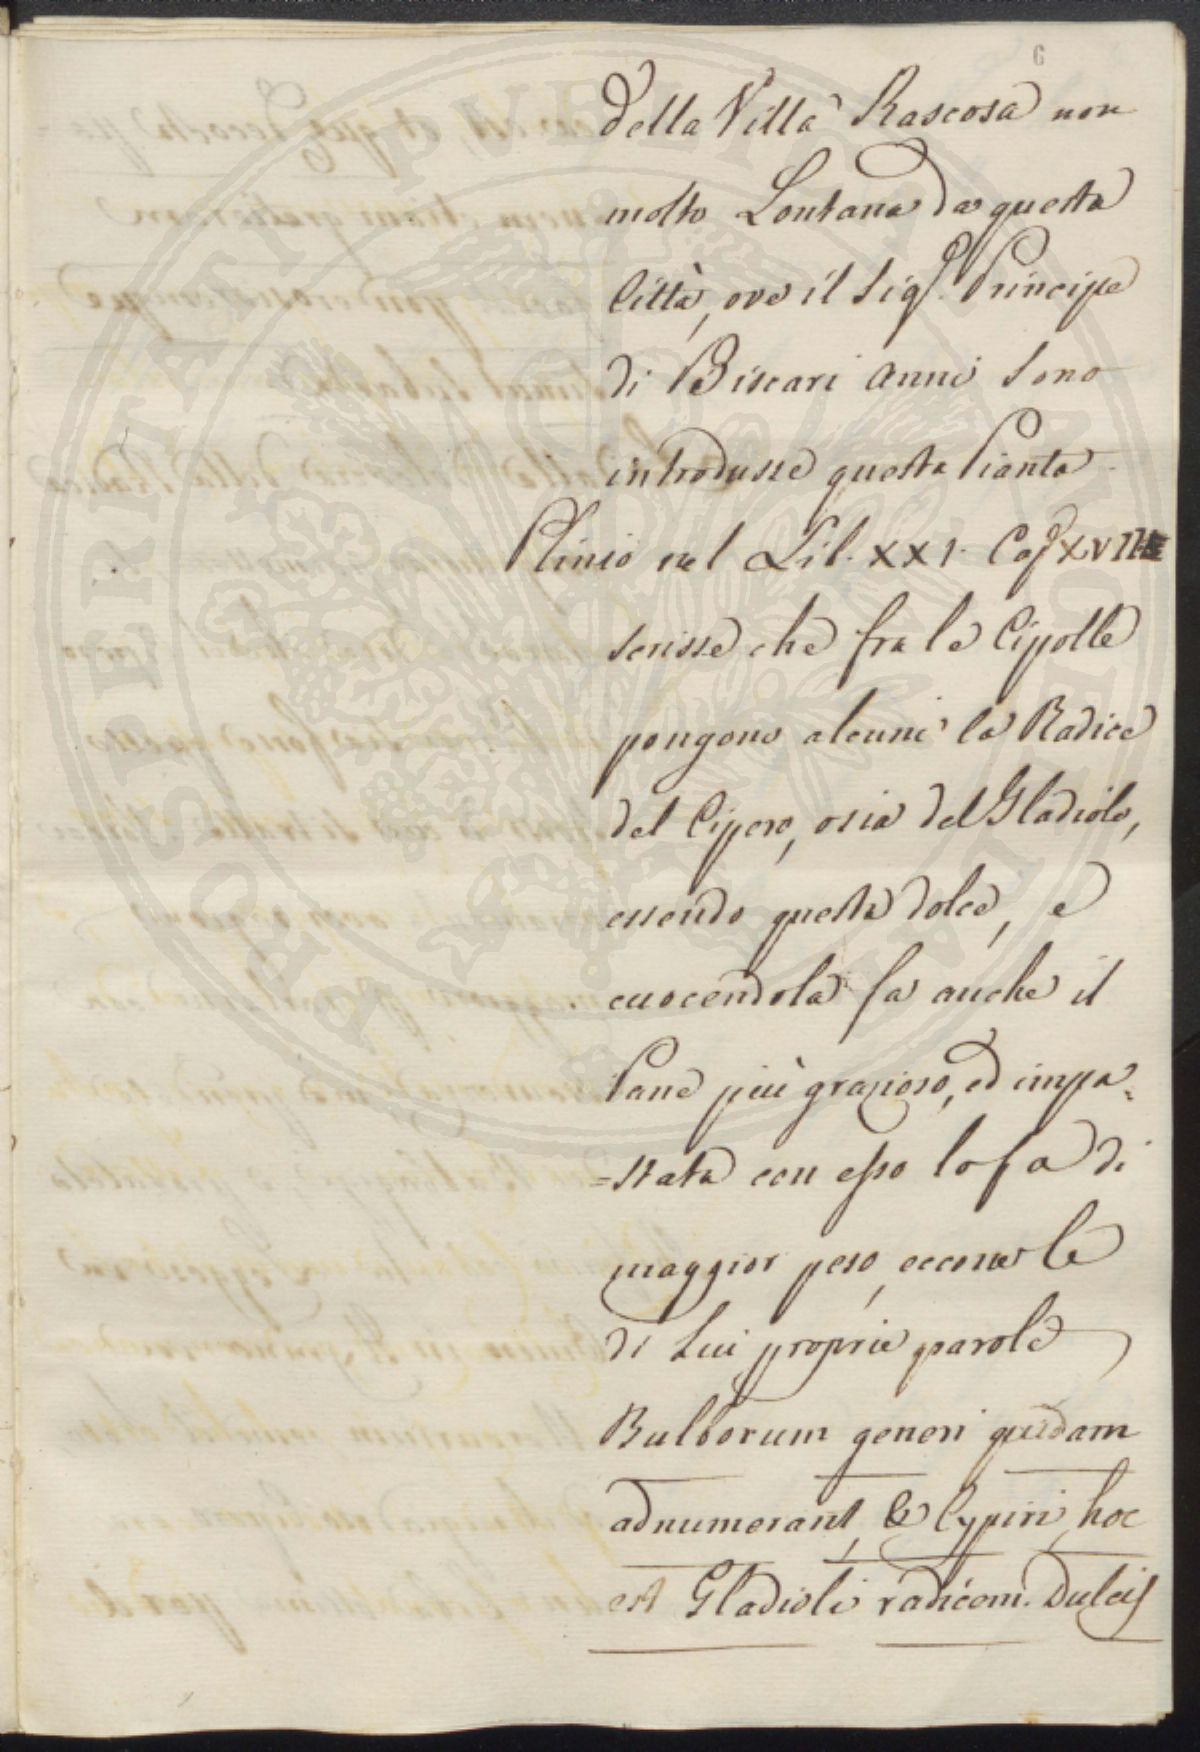 6
della Villa Rascosa non
molto Lontana da questa
Città, ove il Sig.r Principe
di Biscari anni sono
introdusse questa Pianta.
Plinio nel Lib. XXI. Cap. XVII
scrisse che fra le Cipolle
pongono alcuni la Radice
del Cipero, osia del Gladiolo,
essendo questa dolce, e
cuocendola fa anche il
Pane più grazioso, ed impa=
=stata con esso lo fa di
maggior peso, eccone le
di Lui proprie parole
Bulborum generi quidam
adnumerant, & Cypiri, hoc
est Gladioli radicem. Dulcis
PROSPERITATI PVBLICAE AVGENDAE